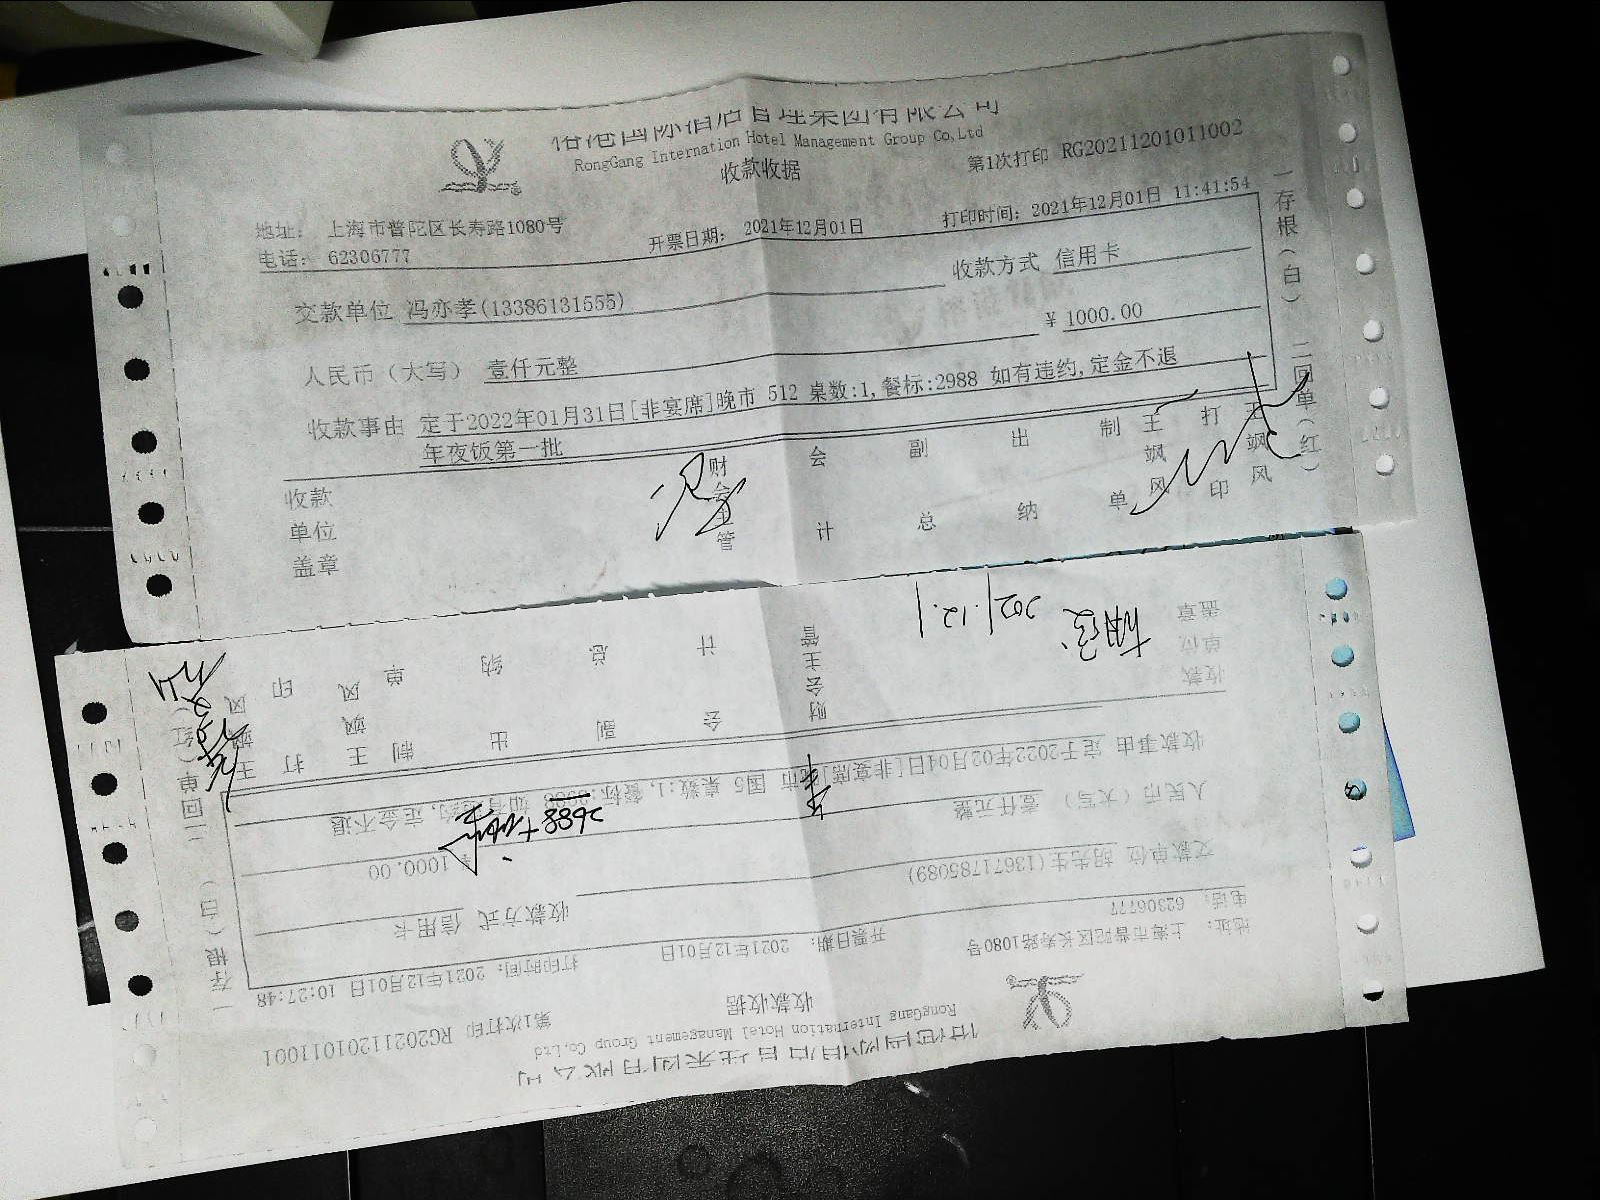 RongGang Internation Hotel Management Group Co,Ltd
收款收据
第1次打印 RG20211201011002
地址: 上海市普陀区长寿路1080号
电话: 62306777
开票日期: 2021年12月01日
打印时间: 2021年12月01日 11:41:54
交款单位 冯亦孝(13386131555)
收款方式 信用卡
人民币（大写） 壹仟元整
¥ 1000.00
收款事由 定于2022年01月31日[非宴席]晚市 512 桌数:1,餐标:2988 如有违约,定金不退
年夜饭第一批
收款
单位
盖章
财会主管
会计
副总
出纳
制单
王飒风
打印
王飒风
一存根(白) 二回单(红)
RongGang Internation Hotel Management Group Co,Ltd
收款收据
第1次打印 RG20211201011001
地址: 上海市普陀区长寿路1080号
电话: 62306777
开票日期: 2021年12月01日
打印时间: 2021年12月01日 10:27:48
交款单位 胡先生(13671785089)
收款方式 信用卡
人民币（大写） 壹仟元整
¥ 1000.00
收款事由 定于2022年02月04日[非宴席] 市 国6 桌数:1,餐标: 如有违约,定金不退
2688+
收款
单位
盖章
2021.12.1
财会主管
会计
副总
出纳
制单
王飒风
打印
王飒风
一存根(白) 二回单(红)